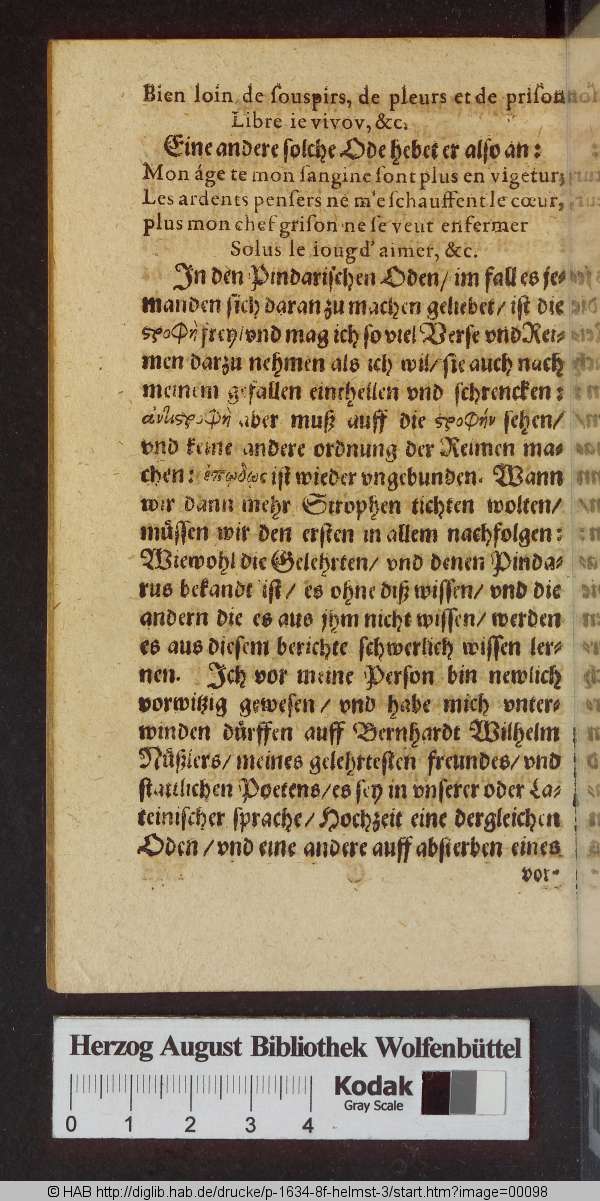 Bien loin de souspirs, de pleurs et de prison
Libre ie vivov, &c.
Eine andere solche Ode hebet er also an:
Mon áge te mon sangine sont plus en vigetur;
Les ardents pensers ne m'eschauffent le cœur,
plus mon chef grison ne se veut enfermer
Solus le iougd'aimer, &c.
In den Pindarischen Oden/ im fall es je-
manden sich daran zu machen geliebet/ ist die
ςροφὴ frey/ vnd mag ich so viel Verse vnd Rei-
men darzu nehmen als ich wil/ sie auch nach
meinem gefallen eintheilen vnd schrencken:
ἀντιςροφὴ aber muß auff die ςροφὴν sehen/
vnd keine andere ordnung der Reimen ma-
chen: ἐπῳδὸς ist wieder vngebunden. Wann
wir dann mehr Strophen tichten wolten/
müssen wir den ersten in allem nachfolgen:
Wiewohl die Gelehrten/ vnd denen Pinda-
rus bekandt ist/ es ohne diß wissen/ vnd die
andern die es aus jhm nicht wissen/ werden
es aus diesem berichte schwerlich wissen ler-
nen. Ich vor meine Person bin newlich
vorwitzig gewesen/ vnd habe mich vnter-
winden dürffen auff Bernhardt Wilhelm
Nüßlers/ meines gelehrtesten freundes/ vnd
stattlichen Poetens/ es sey in vnserer oder La-
teinischer sprache/ Hochzeit eine dergleichen
Oden/ vnd eine andere auff absterben eines
vor-
Herzog August Bibliothek Wolfenbüttel
Kodak
Gray Scale
0 1 2 3 4
© HAB http://diglib.hab.de/drucke/p-1634-8f-helmst-3/start.htm?image=00098